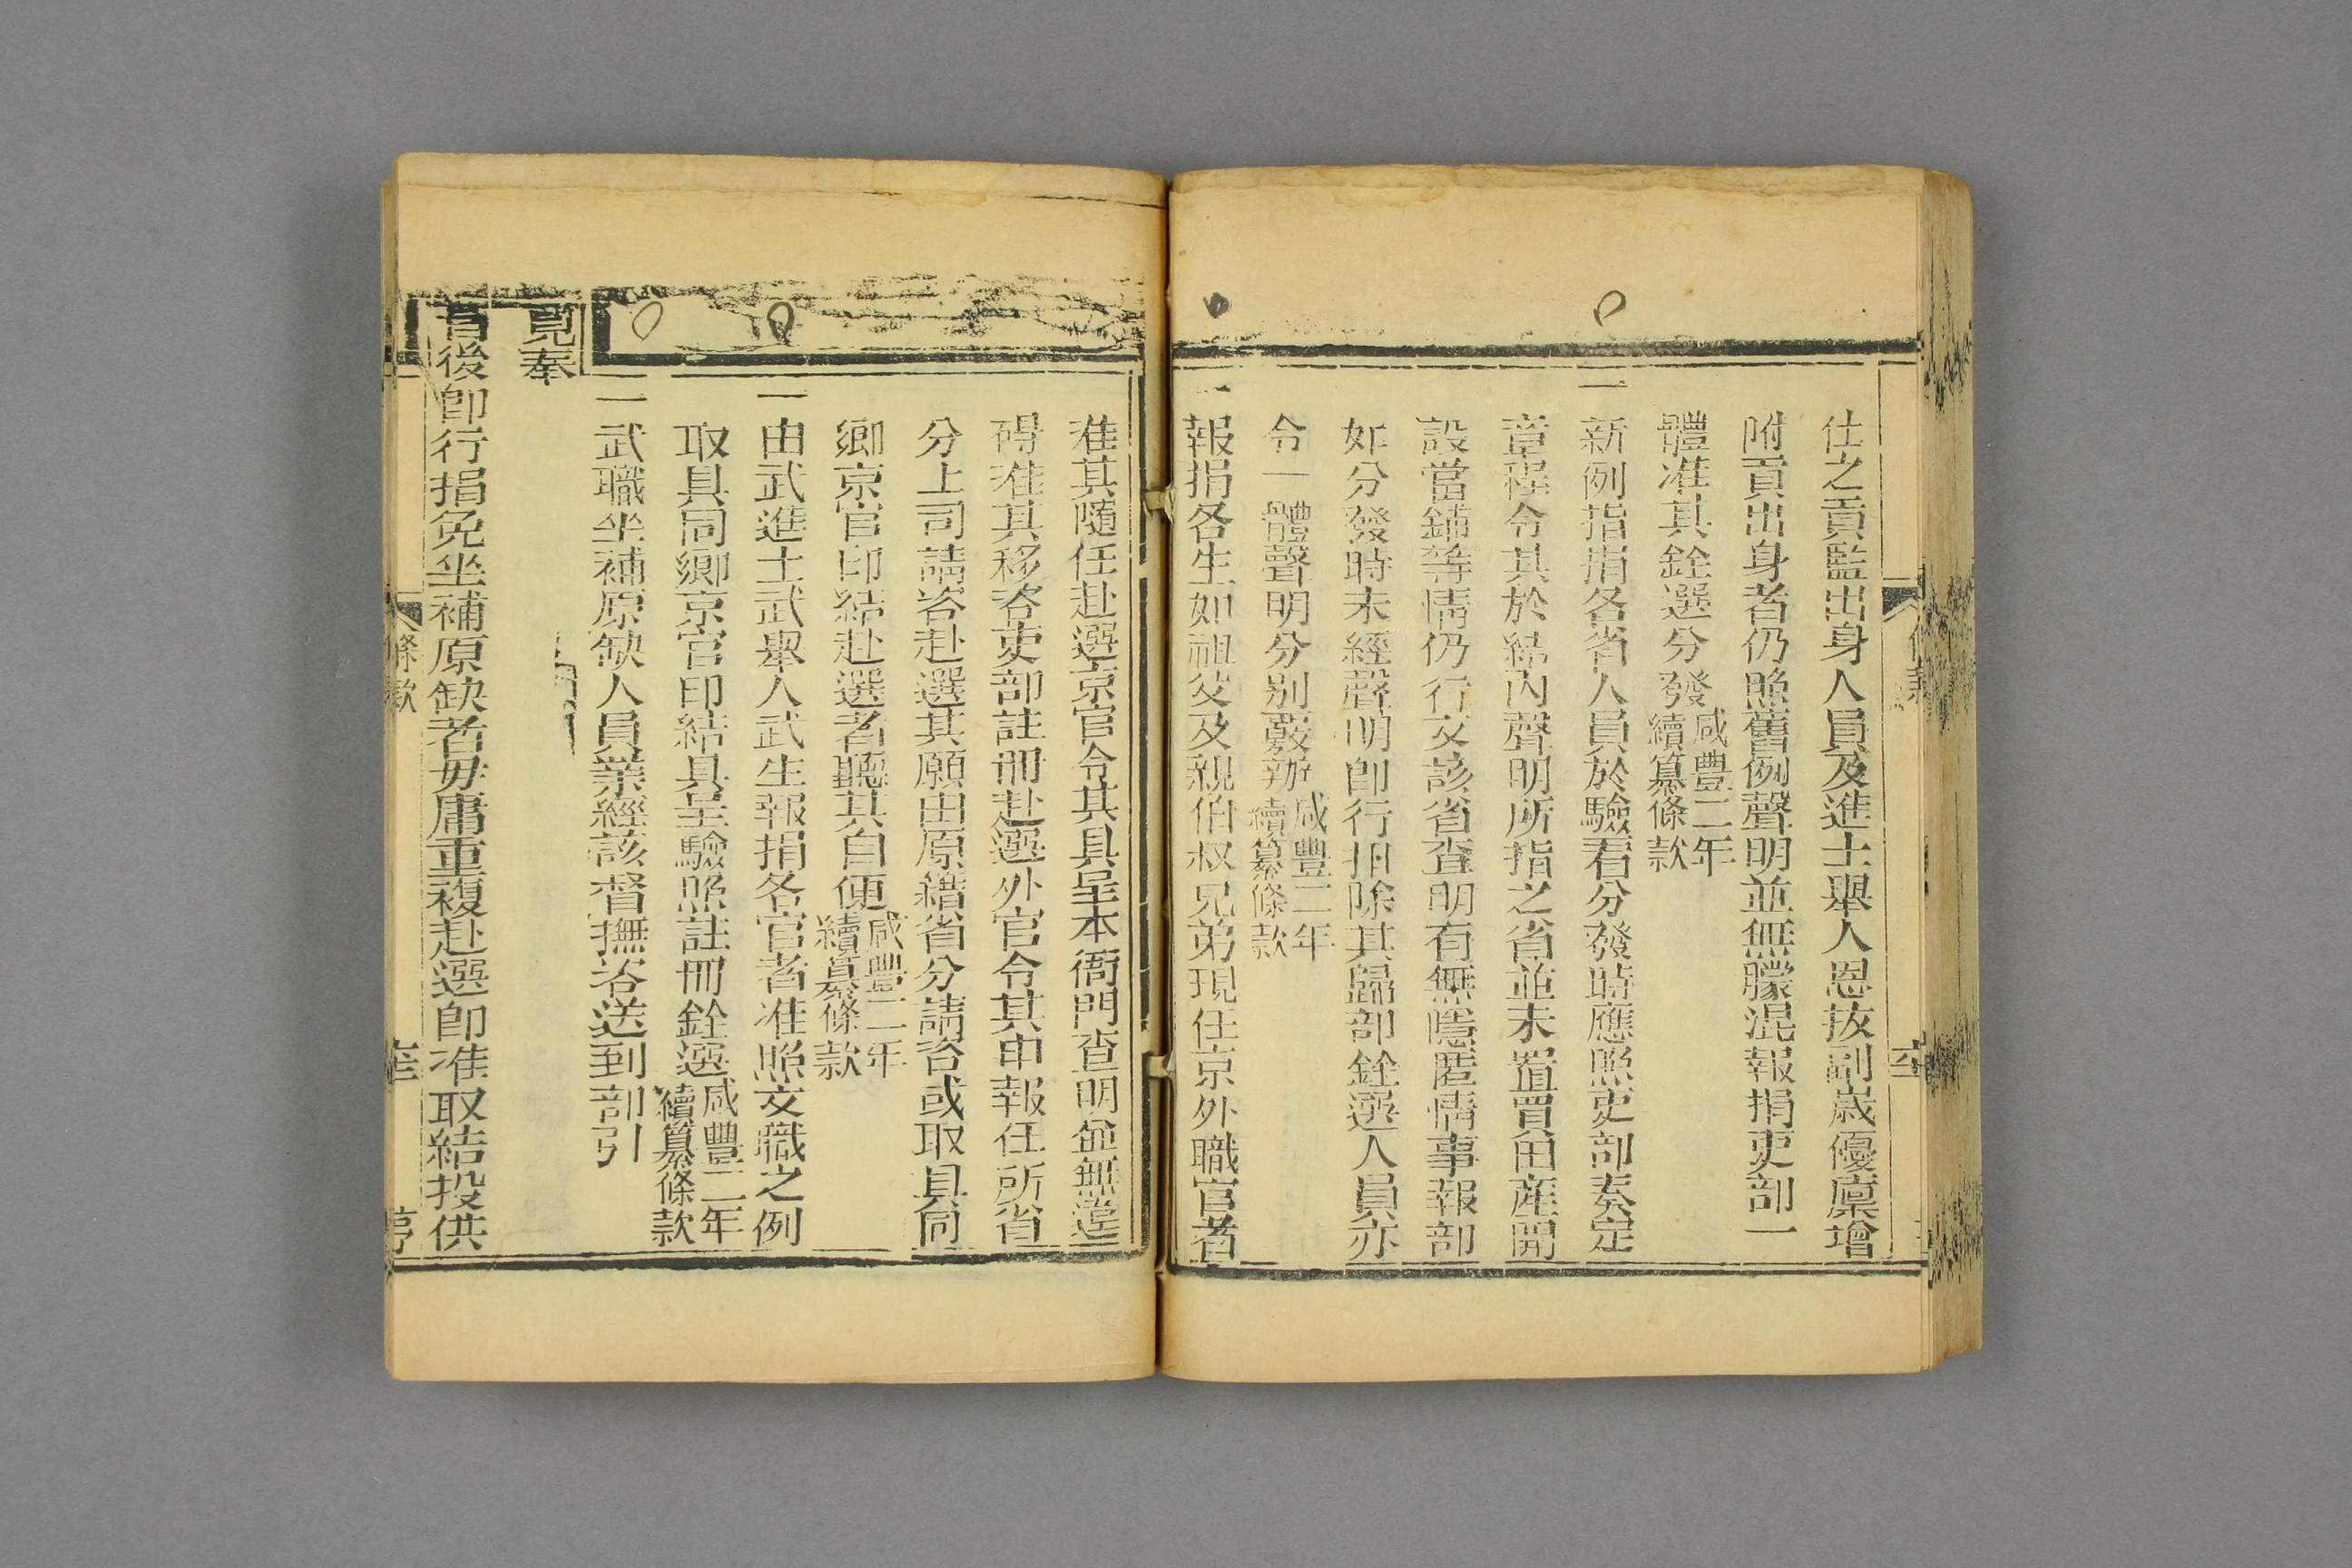 仕之貢監出身人員及進士舉人恩拔副歲優廩增
附貢出身者仍照舊例聲明並無朦混報捐吏部一
體准其銓選分發咸豐二年續纂條款
一新例指捐各省人員於驗看分發時應照吏部奏定
章程令其於結內聲明所指之省並未置買田產開
設當鋪等情仍行文該省查明有無隱匿情事報部
如分發時未經聲明卽行扣除其歸部銓選人員亦
令一體聲明分別覈辦咸豐二年續纂條款
一報捐各生如祖父及親伯叔兄弟現任京外職官者
准其隨任赴選京官令其具呈本衙門查明並無違
碍准其移咨吏部註冊赴選外官令其申報任所省
分上司請咨赴選其願由原籍省分請咨或取具同
鄉京官印結赴選者聽其自便咸豐二年續纂條款
一由武進士武舉人武生報捐各官者准照文職之例
取具同鄉京官印結具呈驗照註冊銓選咸豐二年續纂條款
一武職坐補原缺人員業經該督撫咨送到部引
見奉
旨後卽行捐免坐補原缺者毋庸重複赴選卽准取結投供
條款